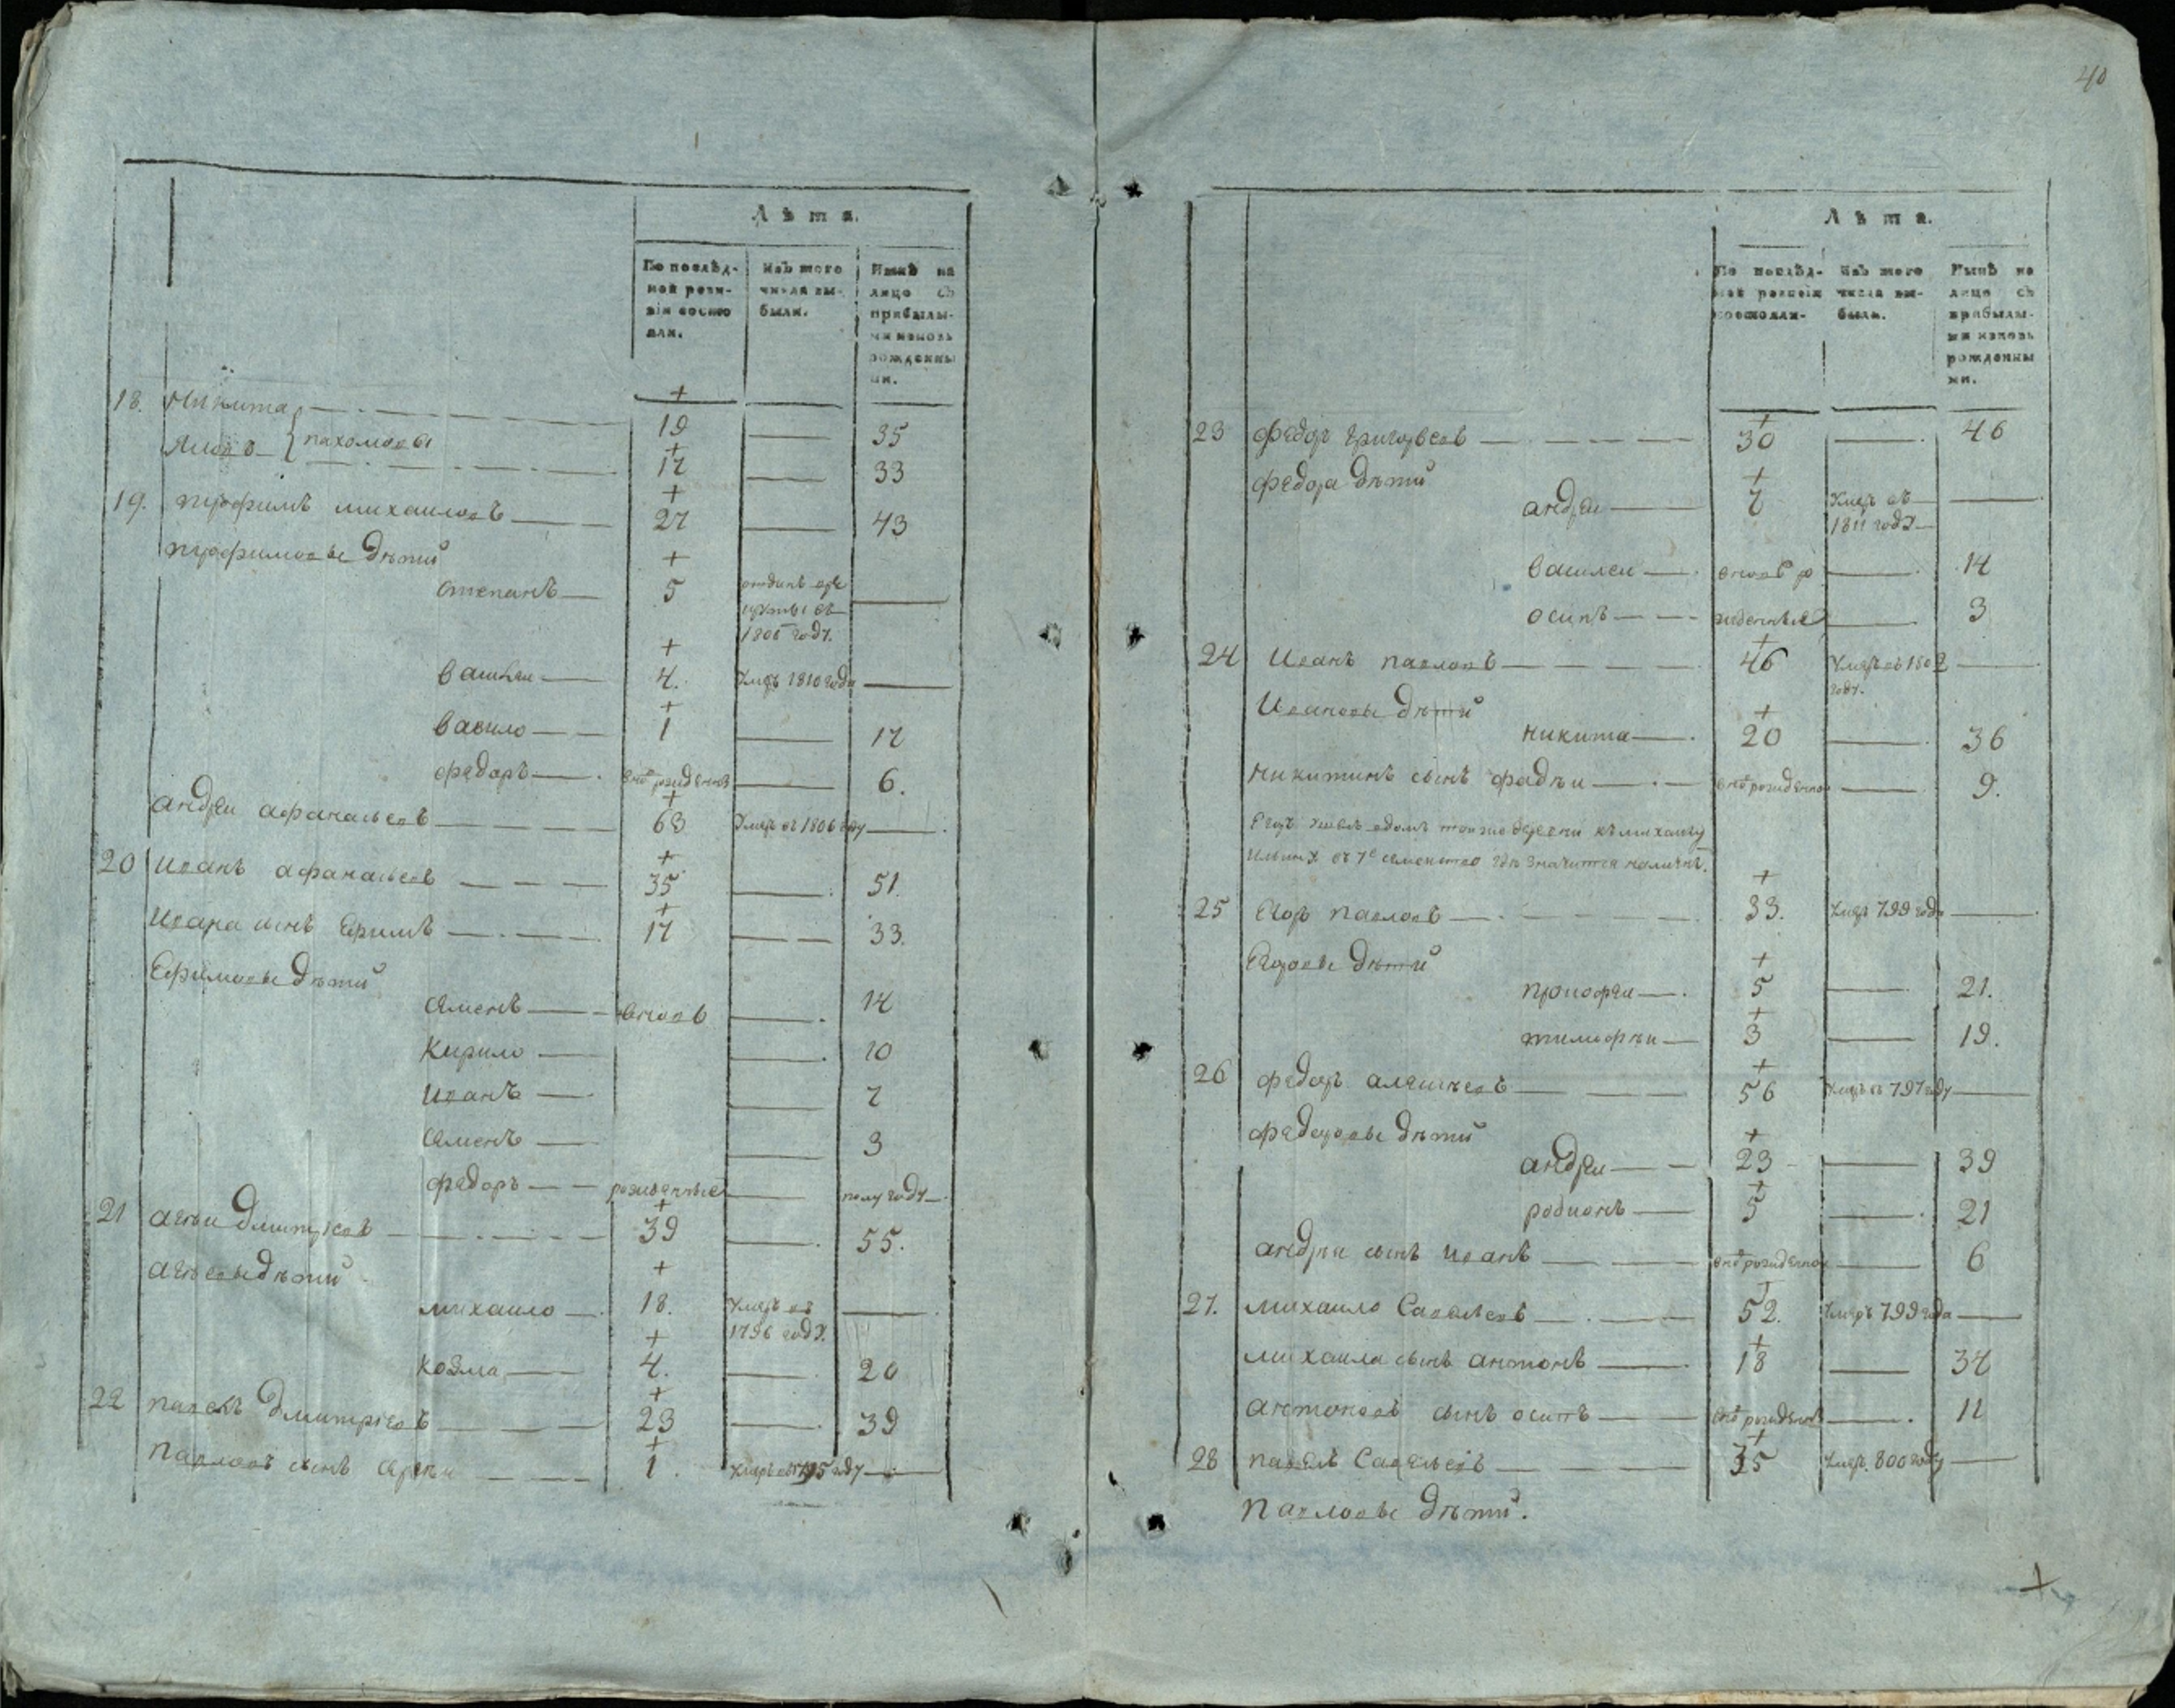 40
Лѣта.
По послѣд-
ней реви-
зіи состо
яли.
Изъ того
числа вы-
были.
Нынѣ на
лицо съ
прибылы-
ми и вновь
рожденны
ми.
18. Никита 19 35
пахомовы
17 33
19. трофимъ михаиловъ 27 43
трофимовы дѣти
степанъ 5 отданъ
1805 году.
василеи 4. умеръ 1810 года
васило 1 17
федоръ внов рожденъ 6.
андреи афанасьевъ 63 умеръ въ 1806 году
20 иванъ афанасьевъ 35 51.
ивана сынъ Ефимъ 17 33.
Ефимовы дѣти
семенъ вновь 14
кирило 10
иванъ 7
семенъ 3
федоръ рожденные полугоду
21 дмитріевъ 39 55.
дѣти
михаило 18. умеръ въ
1796 году.
козма 4. 20
22 павелъ дмитріевъ 23 39
павловъ сынъ 1. умеръ въ 1795 году
Лѣта.
По послѣд-
ней ревизіи
состояли-
Изъ того
числа вы-
были.
Нынѣ на
лицо съ
прибылы-
ми и вновь
рожденны
ми.
23 федоръ григорьевъ 30 46
федора дѣти
андреи 7 умеръ въ
1811 году
василеи вновь ро 14
осипъ жденные 3
24 иванъ павловъ 46 умеръ въ 1802
году.
ивановы дѣти
никита 20 36
никитинъ сынъ фадѣи внов рожденнои 9.
къ михаилу
семеиство гдѣ значится
25 Егоръ павловъ 33. умеръ 799 года
Егоровы дѣти
прокофеи 5 21.
тимофѣи 3 19.
26 федоръ алексѣевъ 56 умеръ въ 797 году
федоровы дѣти
андреи 23 39
родионъ 5 21
андрѣи сынъ иванъ внов рожденнои 6
27. михаило Савельевъ 52. умеръ 799 года
михаила сынъ антонъ 18 34
антоновъ сынъ осипъ внов рожденъ 11
28 павелъ Савельевъ 35 умеръ 800 году
павловы дѣти.